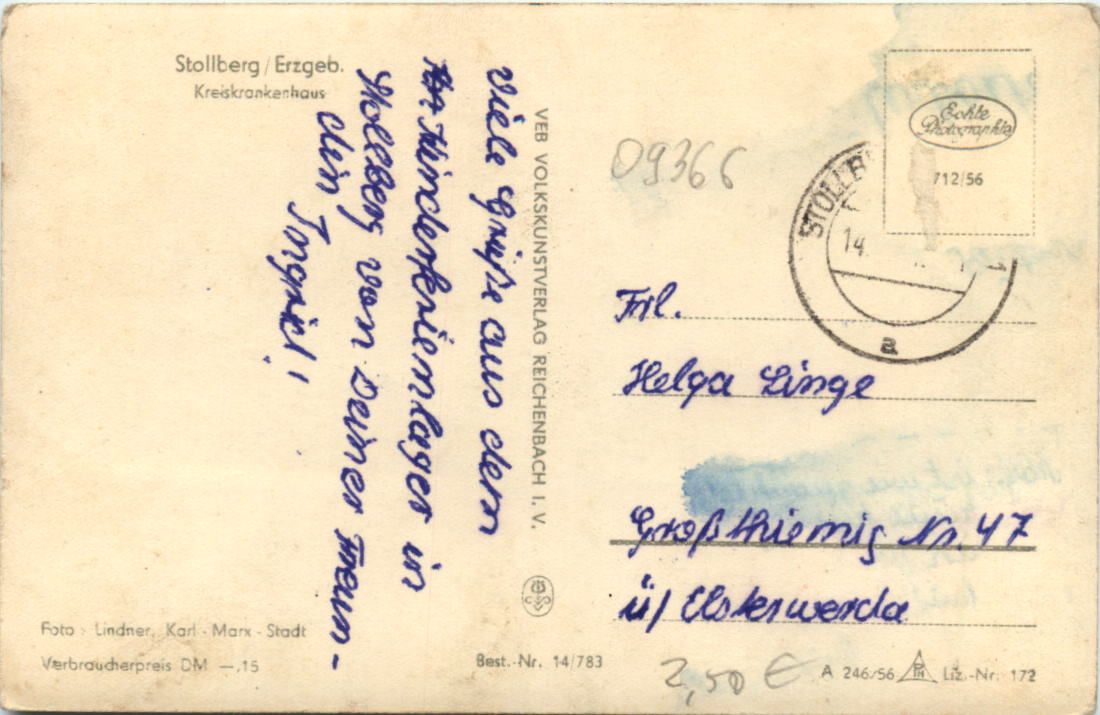 Stollberg / Erzgeb.
Kreiskrankenhaus
Viele Grüße aus dem
Kinderferienlager in
Stollberg von Deiner Freun-
din Ingrid!
VEB VOLKSKUNSTVERLAG REICHENBACH I. V.
Foto: Lindner, Karl-Marx-Stadt
Verbraucherpreis DM —,15
Best.-Nr. 14/783
09366
Echte
Photographie
712/56
STOLLB
14.
a
Frl.
Helga Linge
Großthiemig Nr. 47
ü/ Elsterwerda
2,50 €
A 246/56 Liz.-Nr. 172